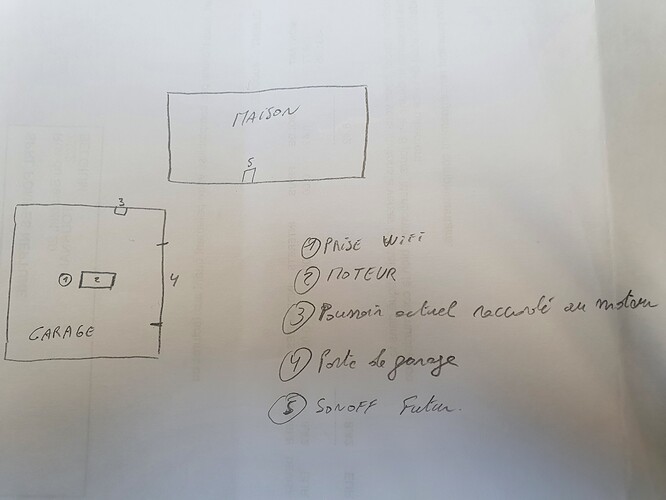 MAISON
5
3
1
2
4
GARAGE
1 PRISE WIFI
2 MOTEUR
3 Poussoir actuel raccordé au moteur
4 Porte de garage
5 SONOFF Futur.